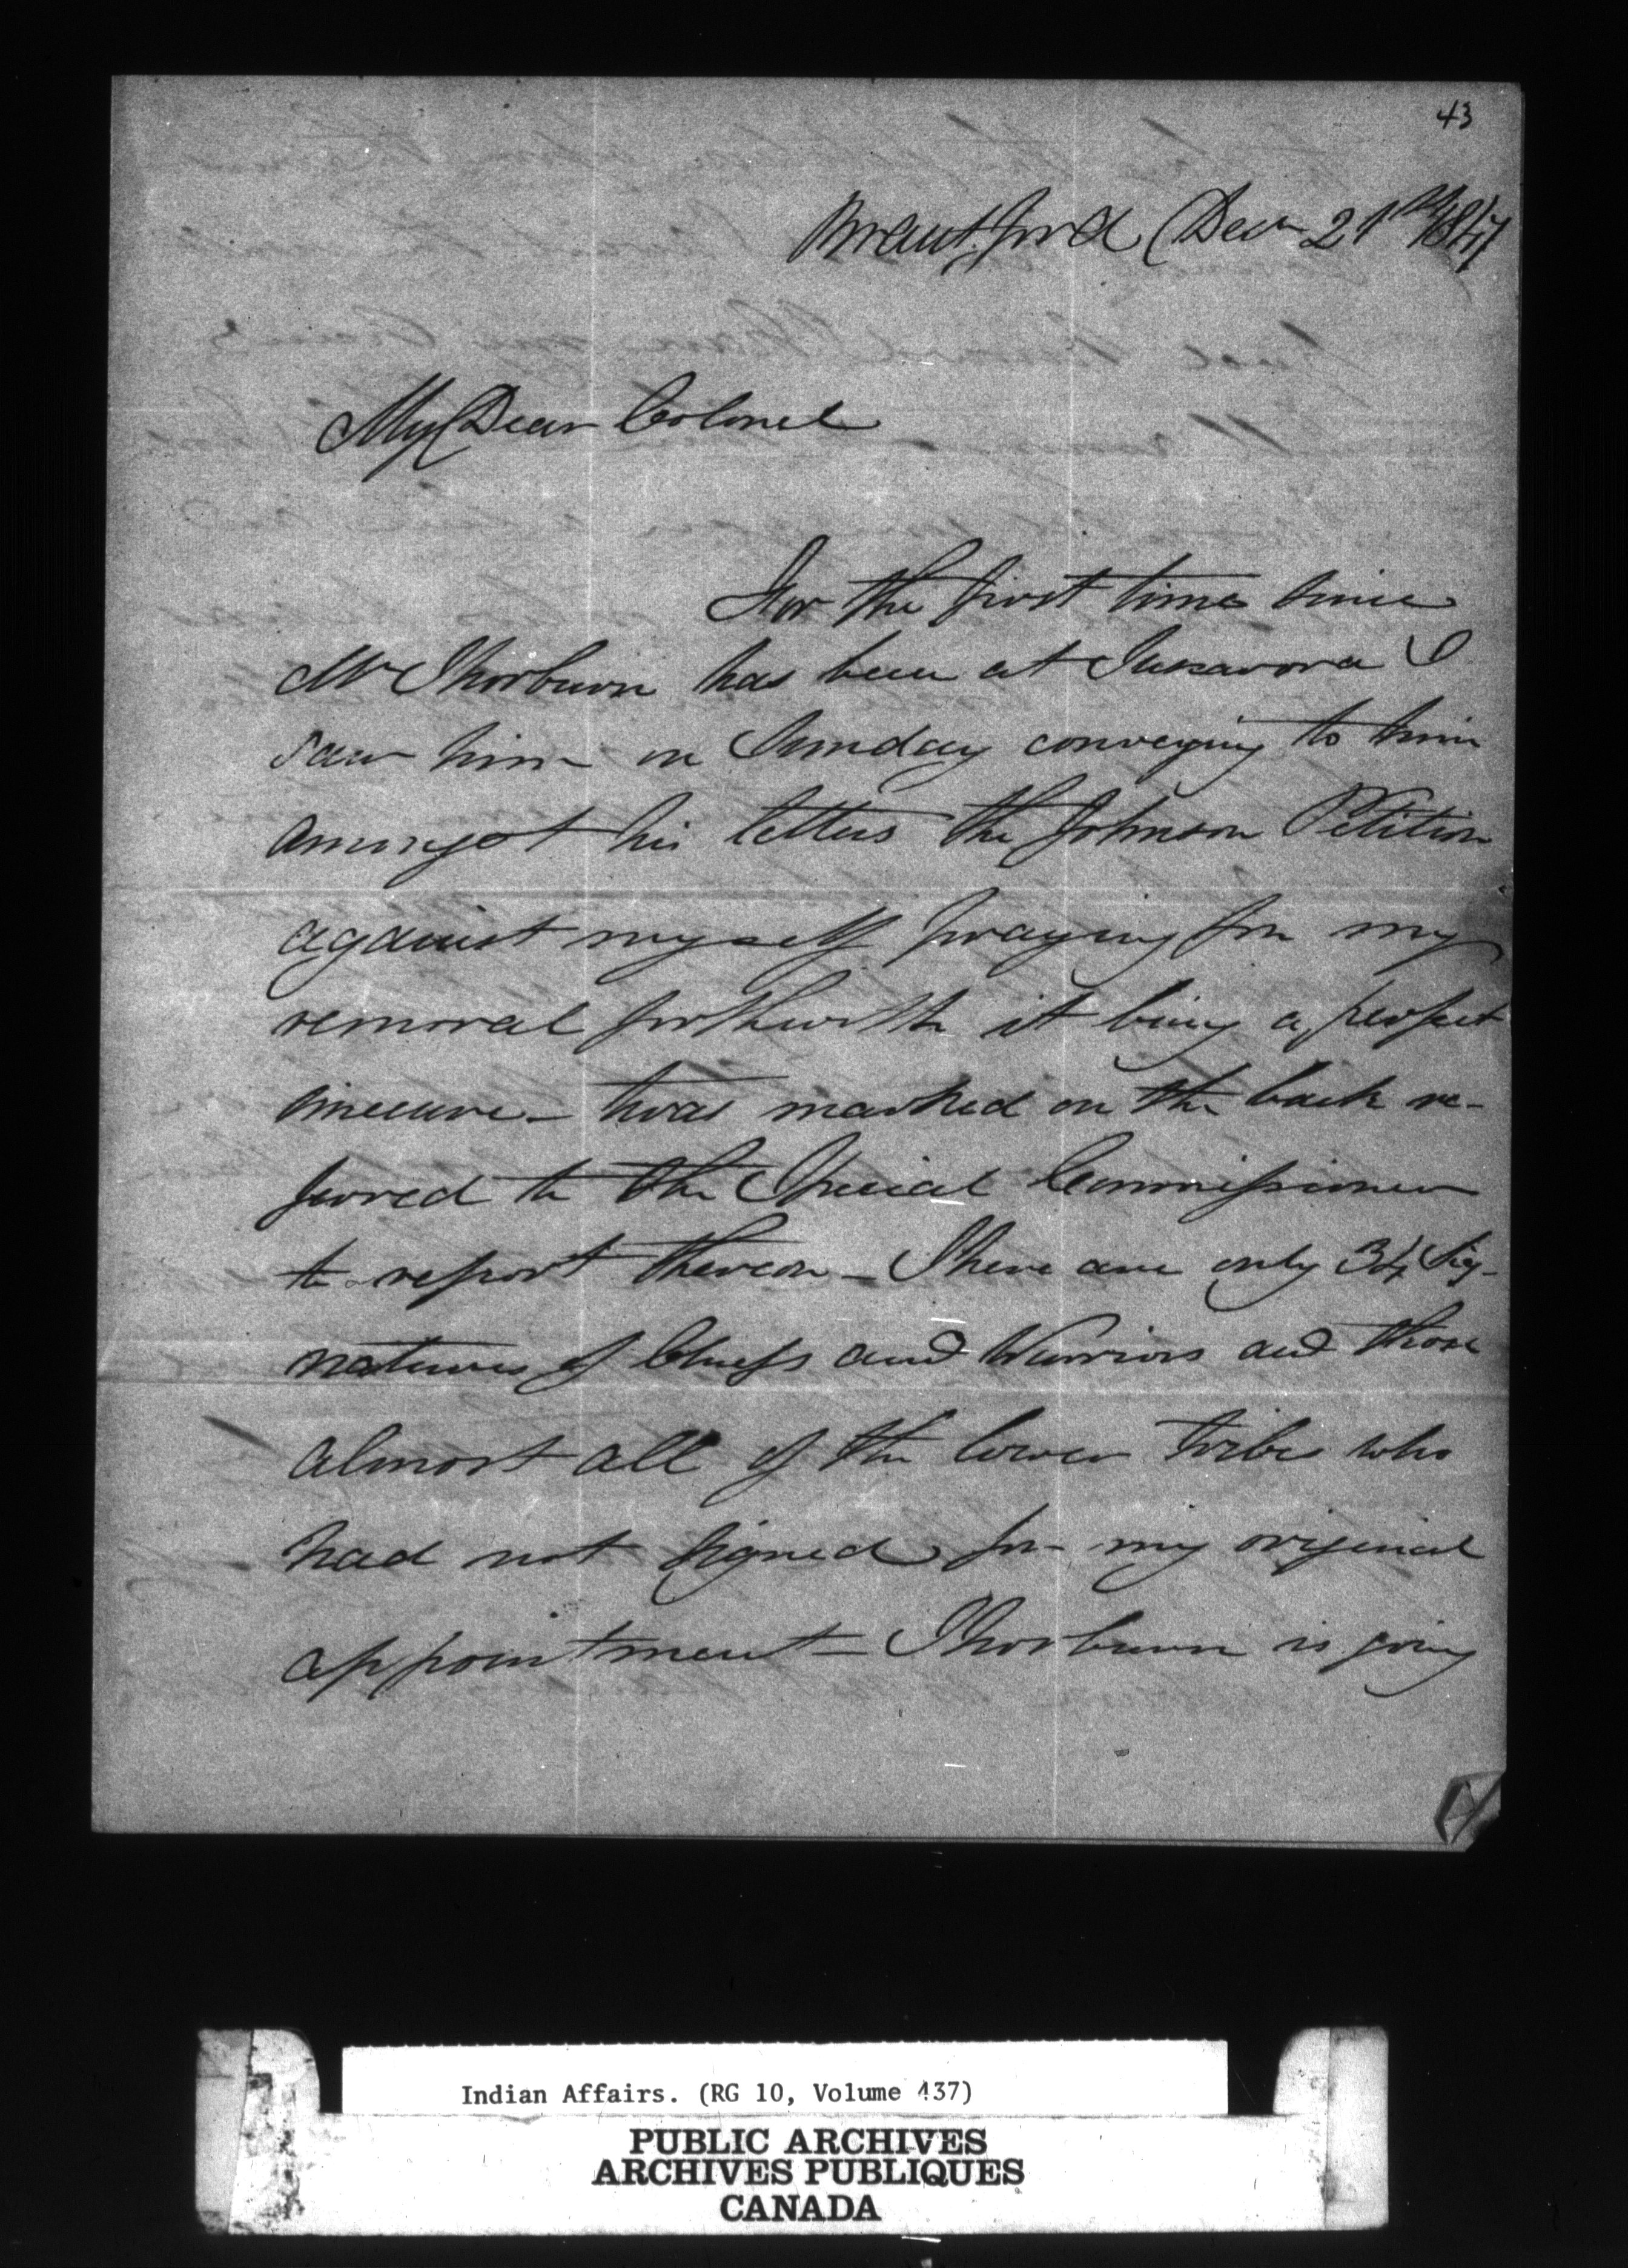 43
Brantford Decr 21st 1847
My Dear Colonel
For the first time since
Mr Thorburn has been at Tuscarora I
saw him on Sunday conveying to him
amongst his letters the Johnson Petition
against myself praying for my
removal forthwith it being a perfect
sinecure - twas marked on the back re-
ferred to the Special Commissioner
to report thereon - There are only 34 Sig-
natures of Chiefs and Warriors and those
almost all of the lower tribes who
had not signed for my original
appointment - Thorburn is going
Indian Affairs. (RG 10, Volume 437)
PUBLIC ARCHIVES
ARCHIVES PUBLIQUES
CANADA